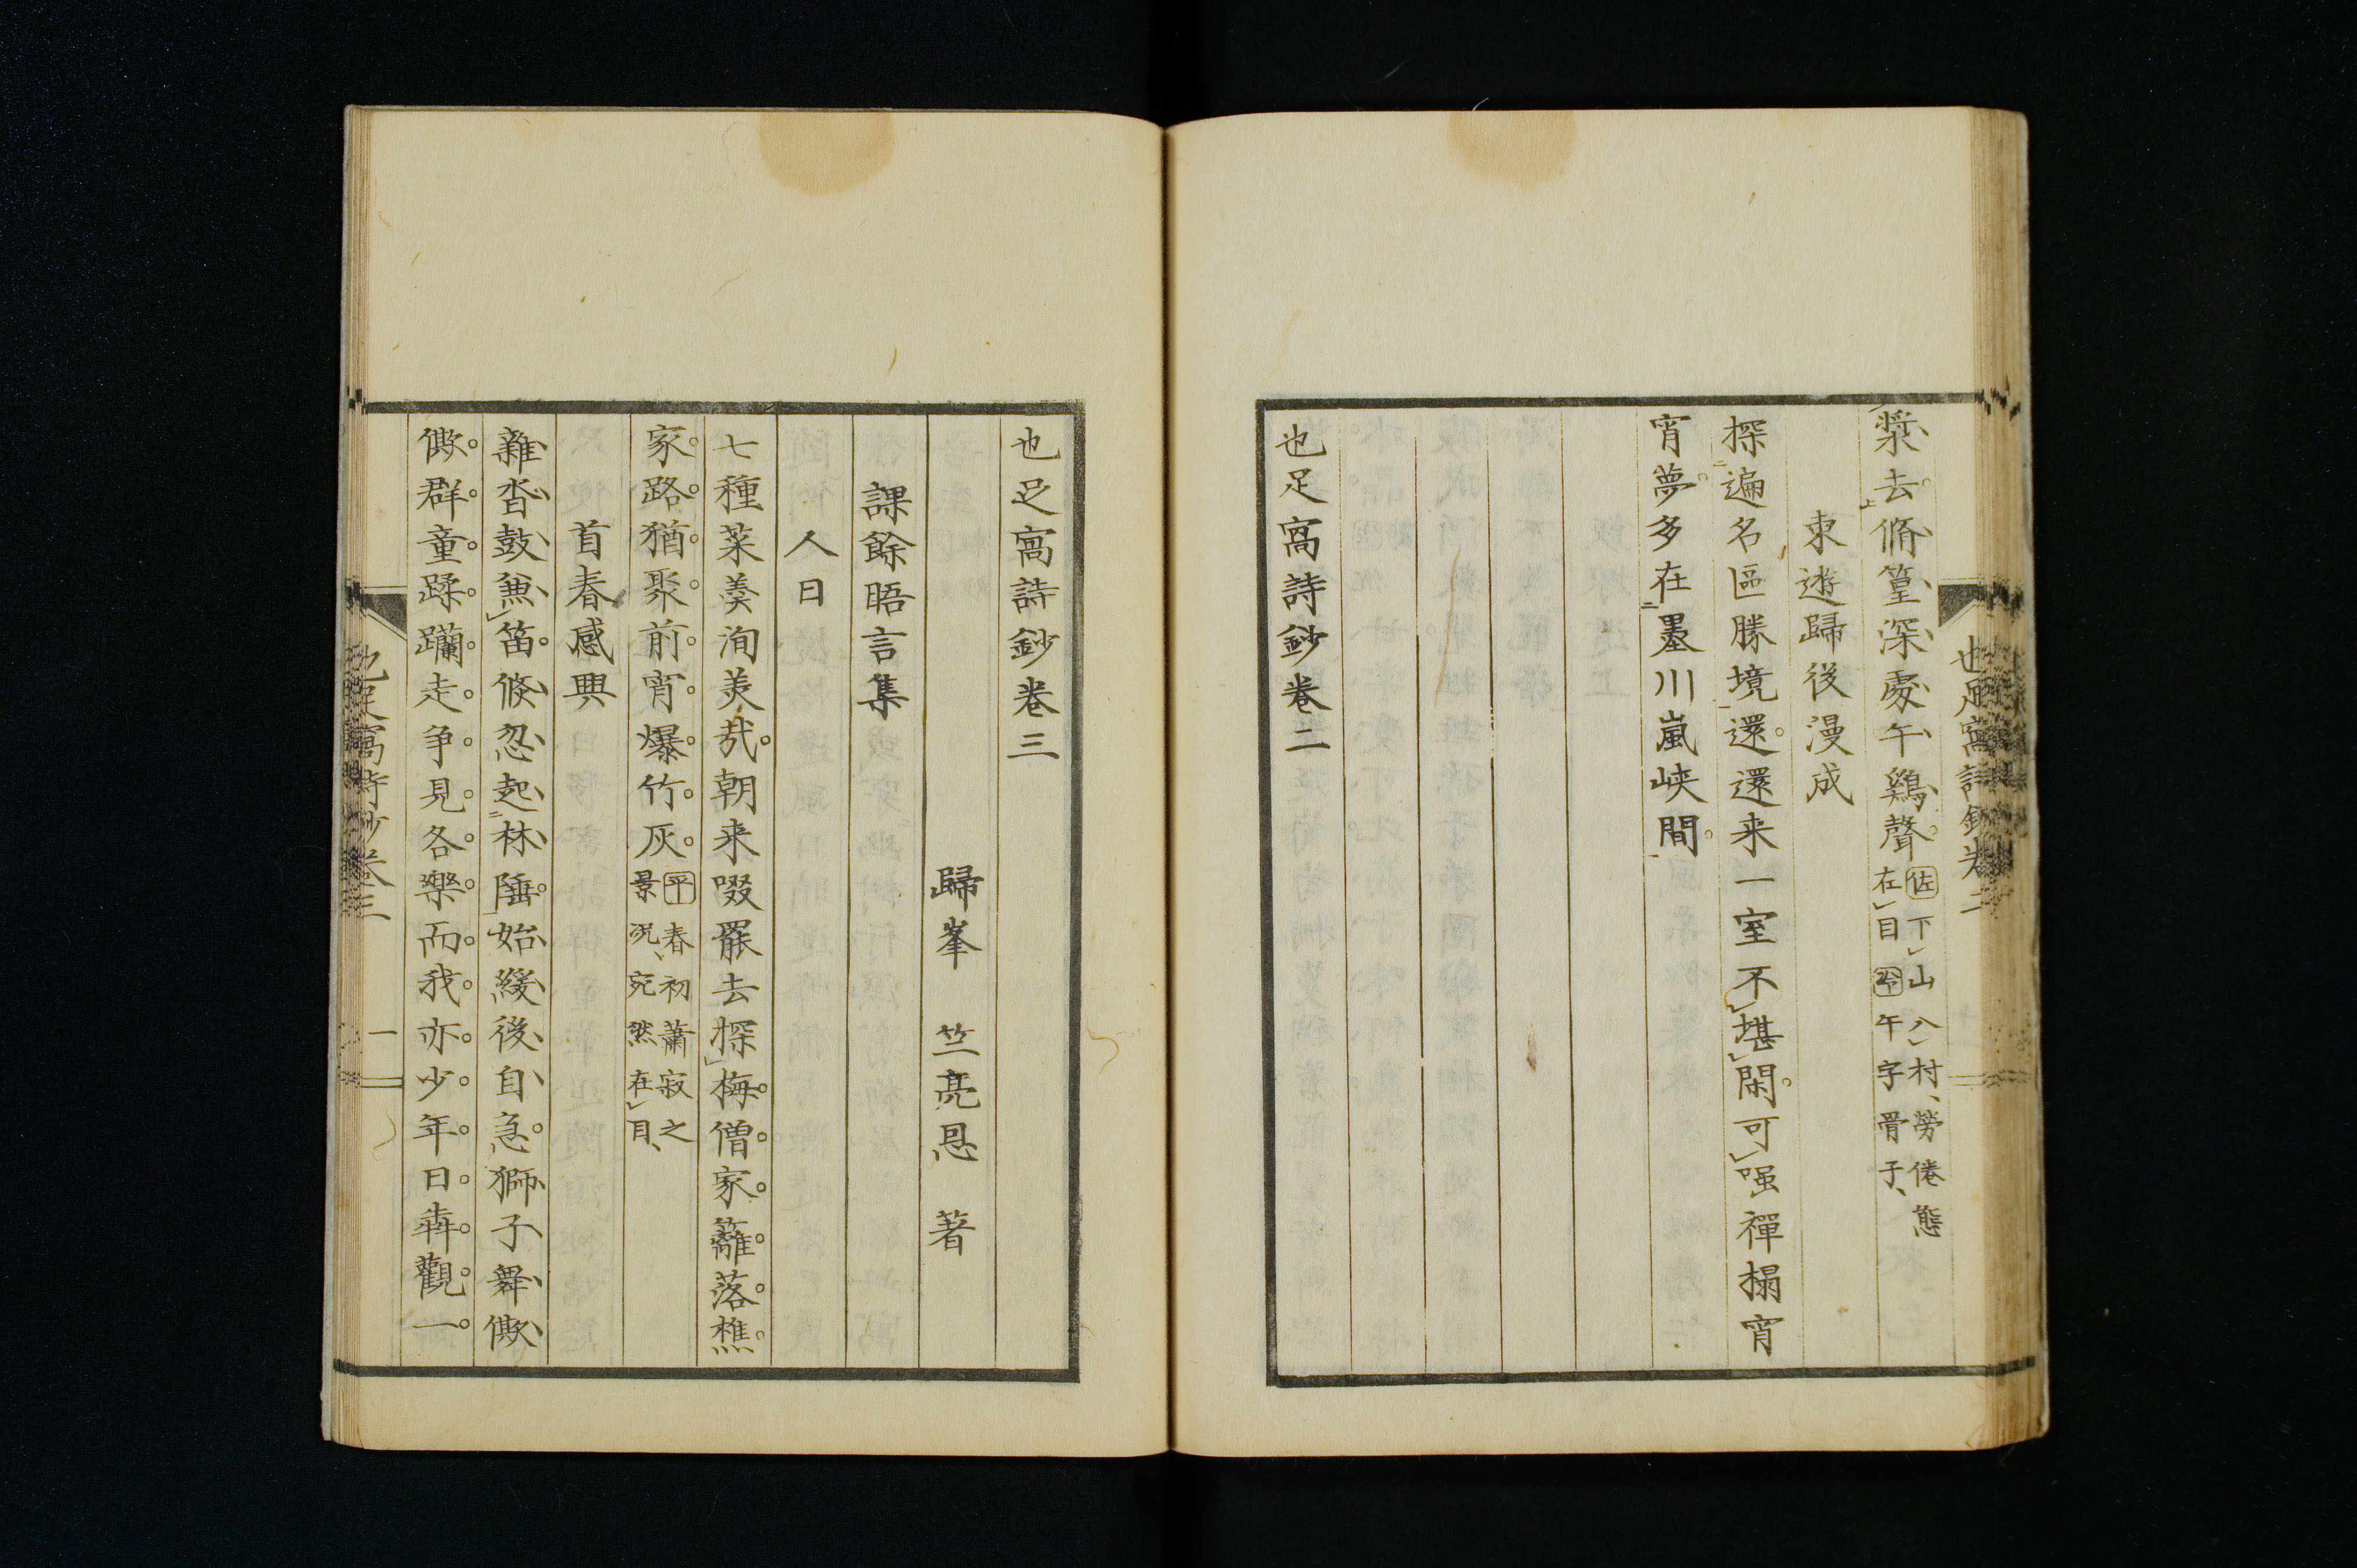 漿去脩篁深處午鷄聲 佐下山八村、勞倦態
在目 平午字骨子、
東遊歸後漫成
探遍名區勝境還還来一室不堪閑可嗤禪榻宵
宵夢多在墨川嵐峡間
也足窩詩鈔巻二
也足窩詩鈔巻二
也足窩詩鈔巻三
歸峯 竺亮恩 著
課餘晤言集
人日
七種菜羮洵美哉朝来啜罷去探梅僧家籬落樵
家路猶聚前宵爆竹灰 平春初蕭寂之
景況、宛然在目、
首春感興
雜沓鼓兼笛倏忽起林陲始緩後自急獅子舞僛
僛群童蹂躪走争見各樂而我亦少年日犇觀一
也足窩詩鈔巻三 一